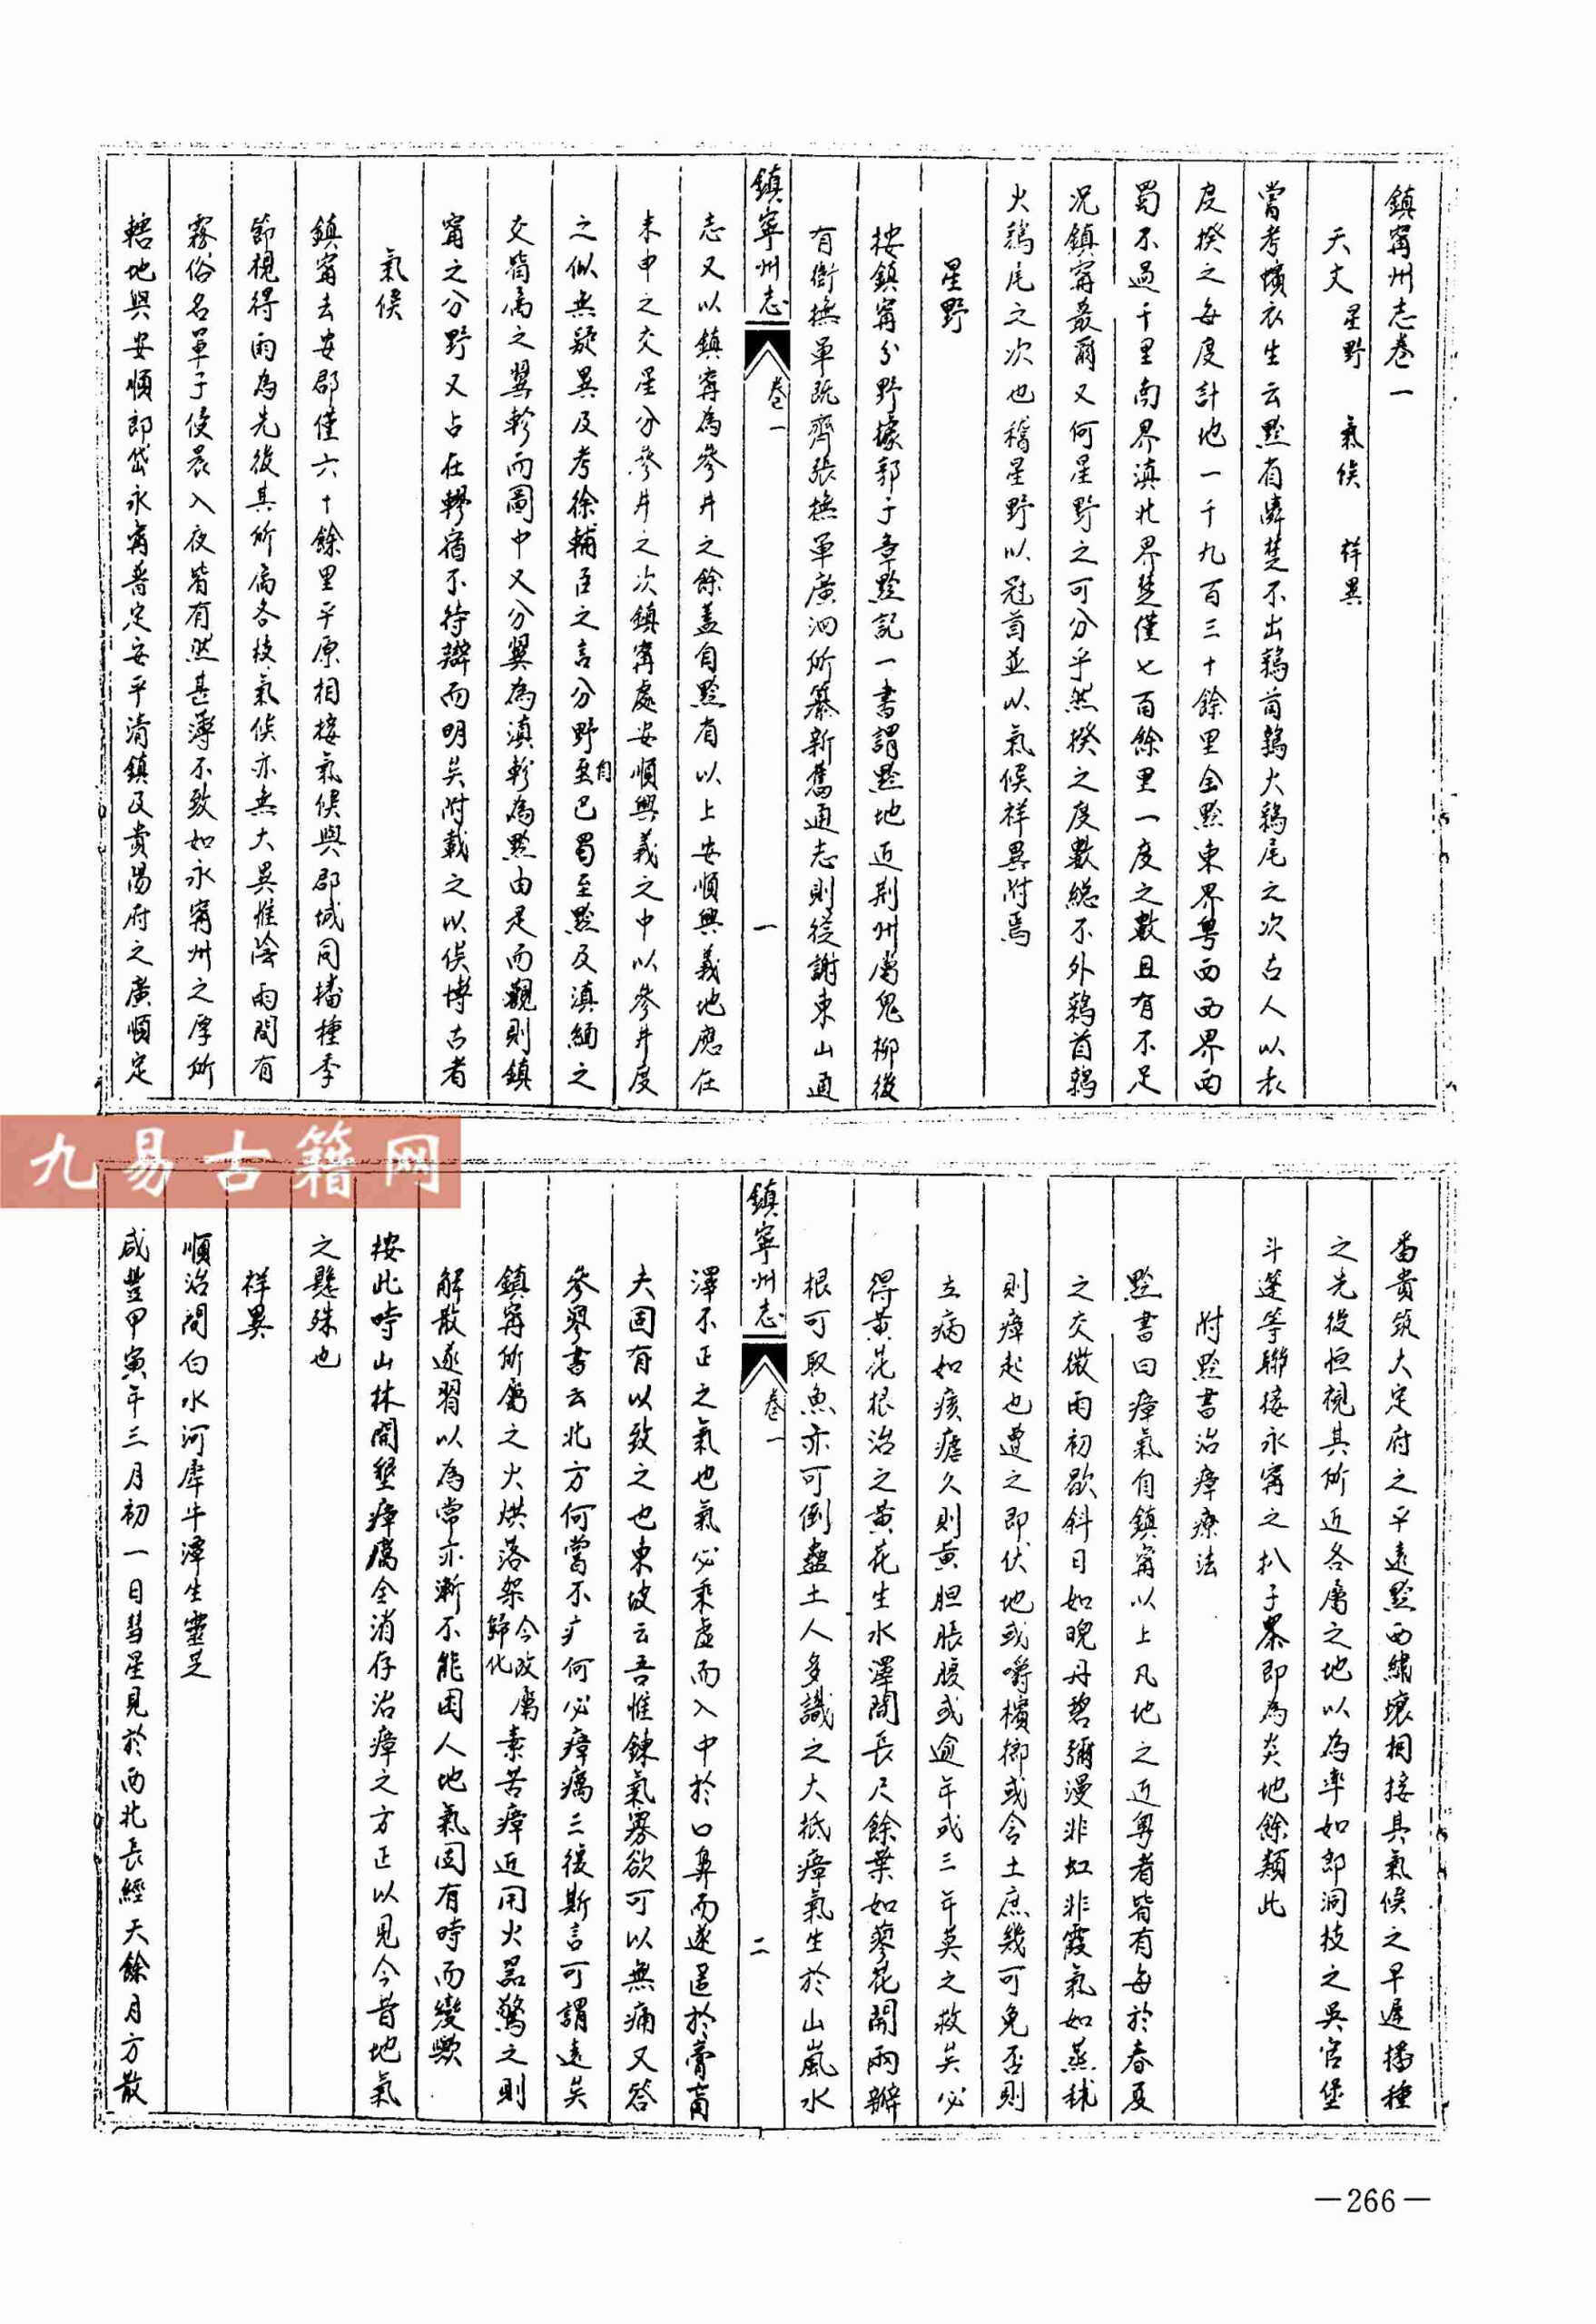 鎮甯州志卷一
天文 星野 氣候 祥異
嘗考蠙衣生云黔省鄰楚不出鶉首鶉火鶉尾之次古人以求
度揆之每度計地一千九百三十餘里全黔東界粤西西界西
蜀不過千里南界滇北界楚僅七百餘里一度之數且有不足
況鎮甯蕞爾又何星野之可分乎然揆之度數總不外鶉首鶉
火鶉尾之次也稽星野以冠首並以氣候祥異附焉
星野
按鎮甯分野據郭子章黔記一書謂黔地近荆州屬鬼柳後
有衛撫軍既齊張撫軍廣泗所纂新舊通志則從謝東山通
鎮寧州志 卷一 一
志又以鎮甯為參井之餘蓋自黔省以上安順興義地應在
未申之交星分參井之次鎮甯處安順興義之中以參井度
之似無疑異及考徐輔臣之言分野自巴蜀至黔及滇緬之
交皆為之翼軫而圖中又分翼為滇軫為黔由是而觀則鎮
甯之分野又占在軫宿不待辯而明矣附載之以俟博古者
氣候
鎮甯去安郡僅六十餘里平原相接氣候與郡城同播種季
節視得雨為先後其所屬各枝氣候亦無大異惟陰雨間有
霧俗名罩子侵晨入夜皆有然甚薄不致如永甯州之厚所
轄地與安順郎岱永甯普定安平清鎮及貴陽府之廣順定
番貴筑大定府之平遠黔西繡壤相接其氣候之早遲播種
之先後恒視其所近各屬之地以為率如郎洞枝之吳官堡
斗蓬等聯接永甯之扒子寨即為炎地餘類此
附黔書治瘴療法
黔書曰瘴氣自鎮甯以上凡地之近粤者皆有每於春夏
之交微雨初歇斜日如睨丹碧彌漫非虹非霞氣如蒸秫
則瘴起也遭之即伏地或嚼檳榔或含土庶幾可免否則
立病如痎瘧久則黄胆脹腹或逾年或三年莫之救矣必
得黄花根治之黄花生水澤間長尺餘葉如蓼花開兩瓣
根可取魚亦可倒蠱土人多識之大抵瘴氣生於山嵐水
鎮寧州志 卷一 二
澤不正之氣也氣必乘虛而入中於口鼻而遂逞於膏肓
夫固有以致之也東坡云吾惟鍊氣寡欲可以無痛又答
參寥書云北方何嘗不疒何必瘴癘三復斯言可謂遠矣
鎮甯所屬之火烘落架今改屬歸化素苦瘴近用火器驚之則
解散遂習以為常亦漸不能困人地氣固有時而變歟
按此時山林開墾瘴癘全消存治瘴之方正以見今昔地氣
之懸殊也
祥異
順治間白水河犀牛潭生靈芝
咸豐甲寅年三月初一日彗星見於西北長經天餘月方散
—266—
九易古籍网